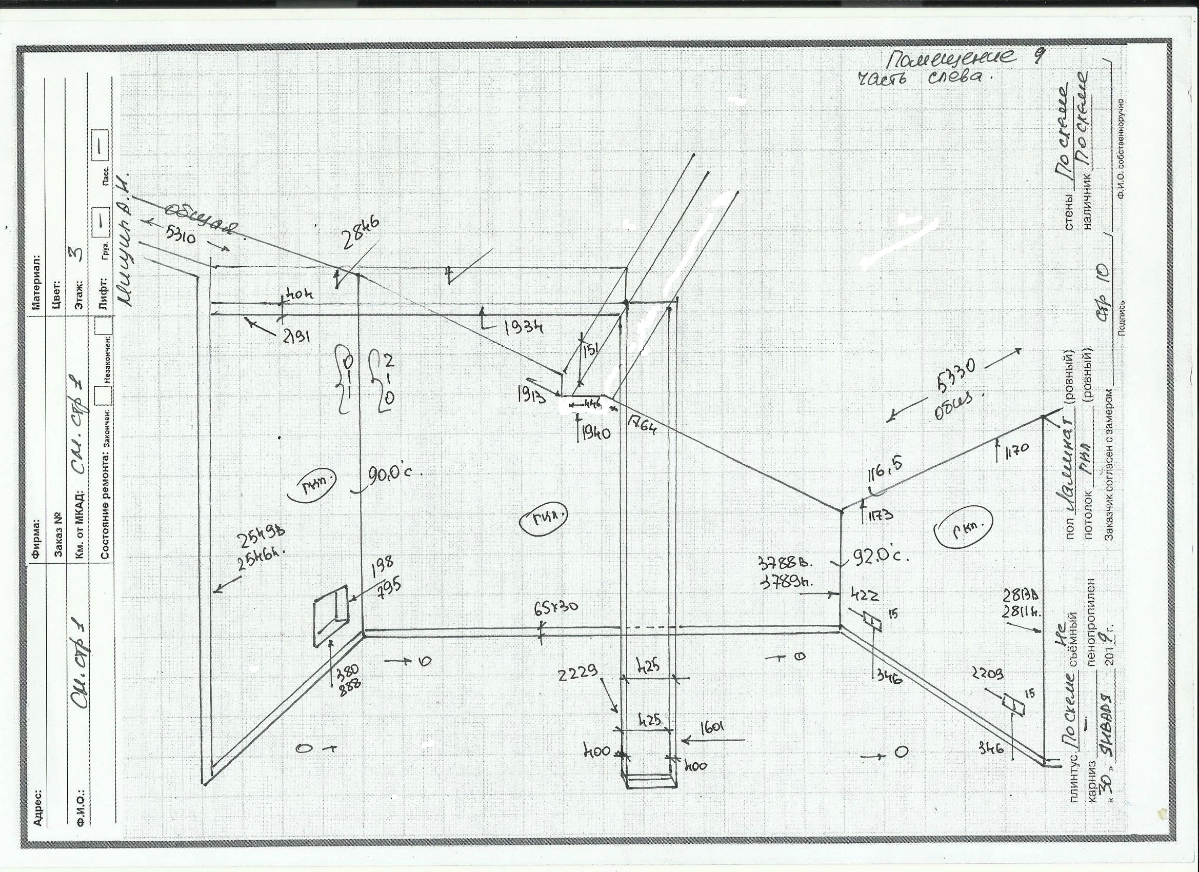 Помещение 9
часть слева.
Адрес:
Ф.И.О.:
см. стр 1
Фирма:
Заказ №
Км. от МКАД: см. стр 1
Состояние ремонта: Закончен: Незакончен:
Материал:
Цвет:
Этаж: 3
Лифт: Груз. — Пасс. —
Мишин А.И.
общая
5310
2846
404
2191
1934
151
1913
446
1940
1764
0
-1
2
-1
0
90.0°с.
гкл.
гкл.
гкл.
5330
общ.
116,5
1173
1170
2549в
2546н.
198
795
380
888
65x30
→ 0
→ 0
0 →
→ 0
2229
425
425
1601
400
400
3788в.
3789н.
92.0°с.
422
15
346
2813в
2811н.
2209
15
346
плинтус По схеме Не съёмный
карниз — пенопропилен
« 30 » января 2019 г.
пол Ламинат (ровный)
потолок гкл (ровный)
Заказчик согласен с замером
стр 10
Подпись
стены По схеме
наличник По схеме
Ф.И.О. собственноручно